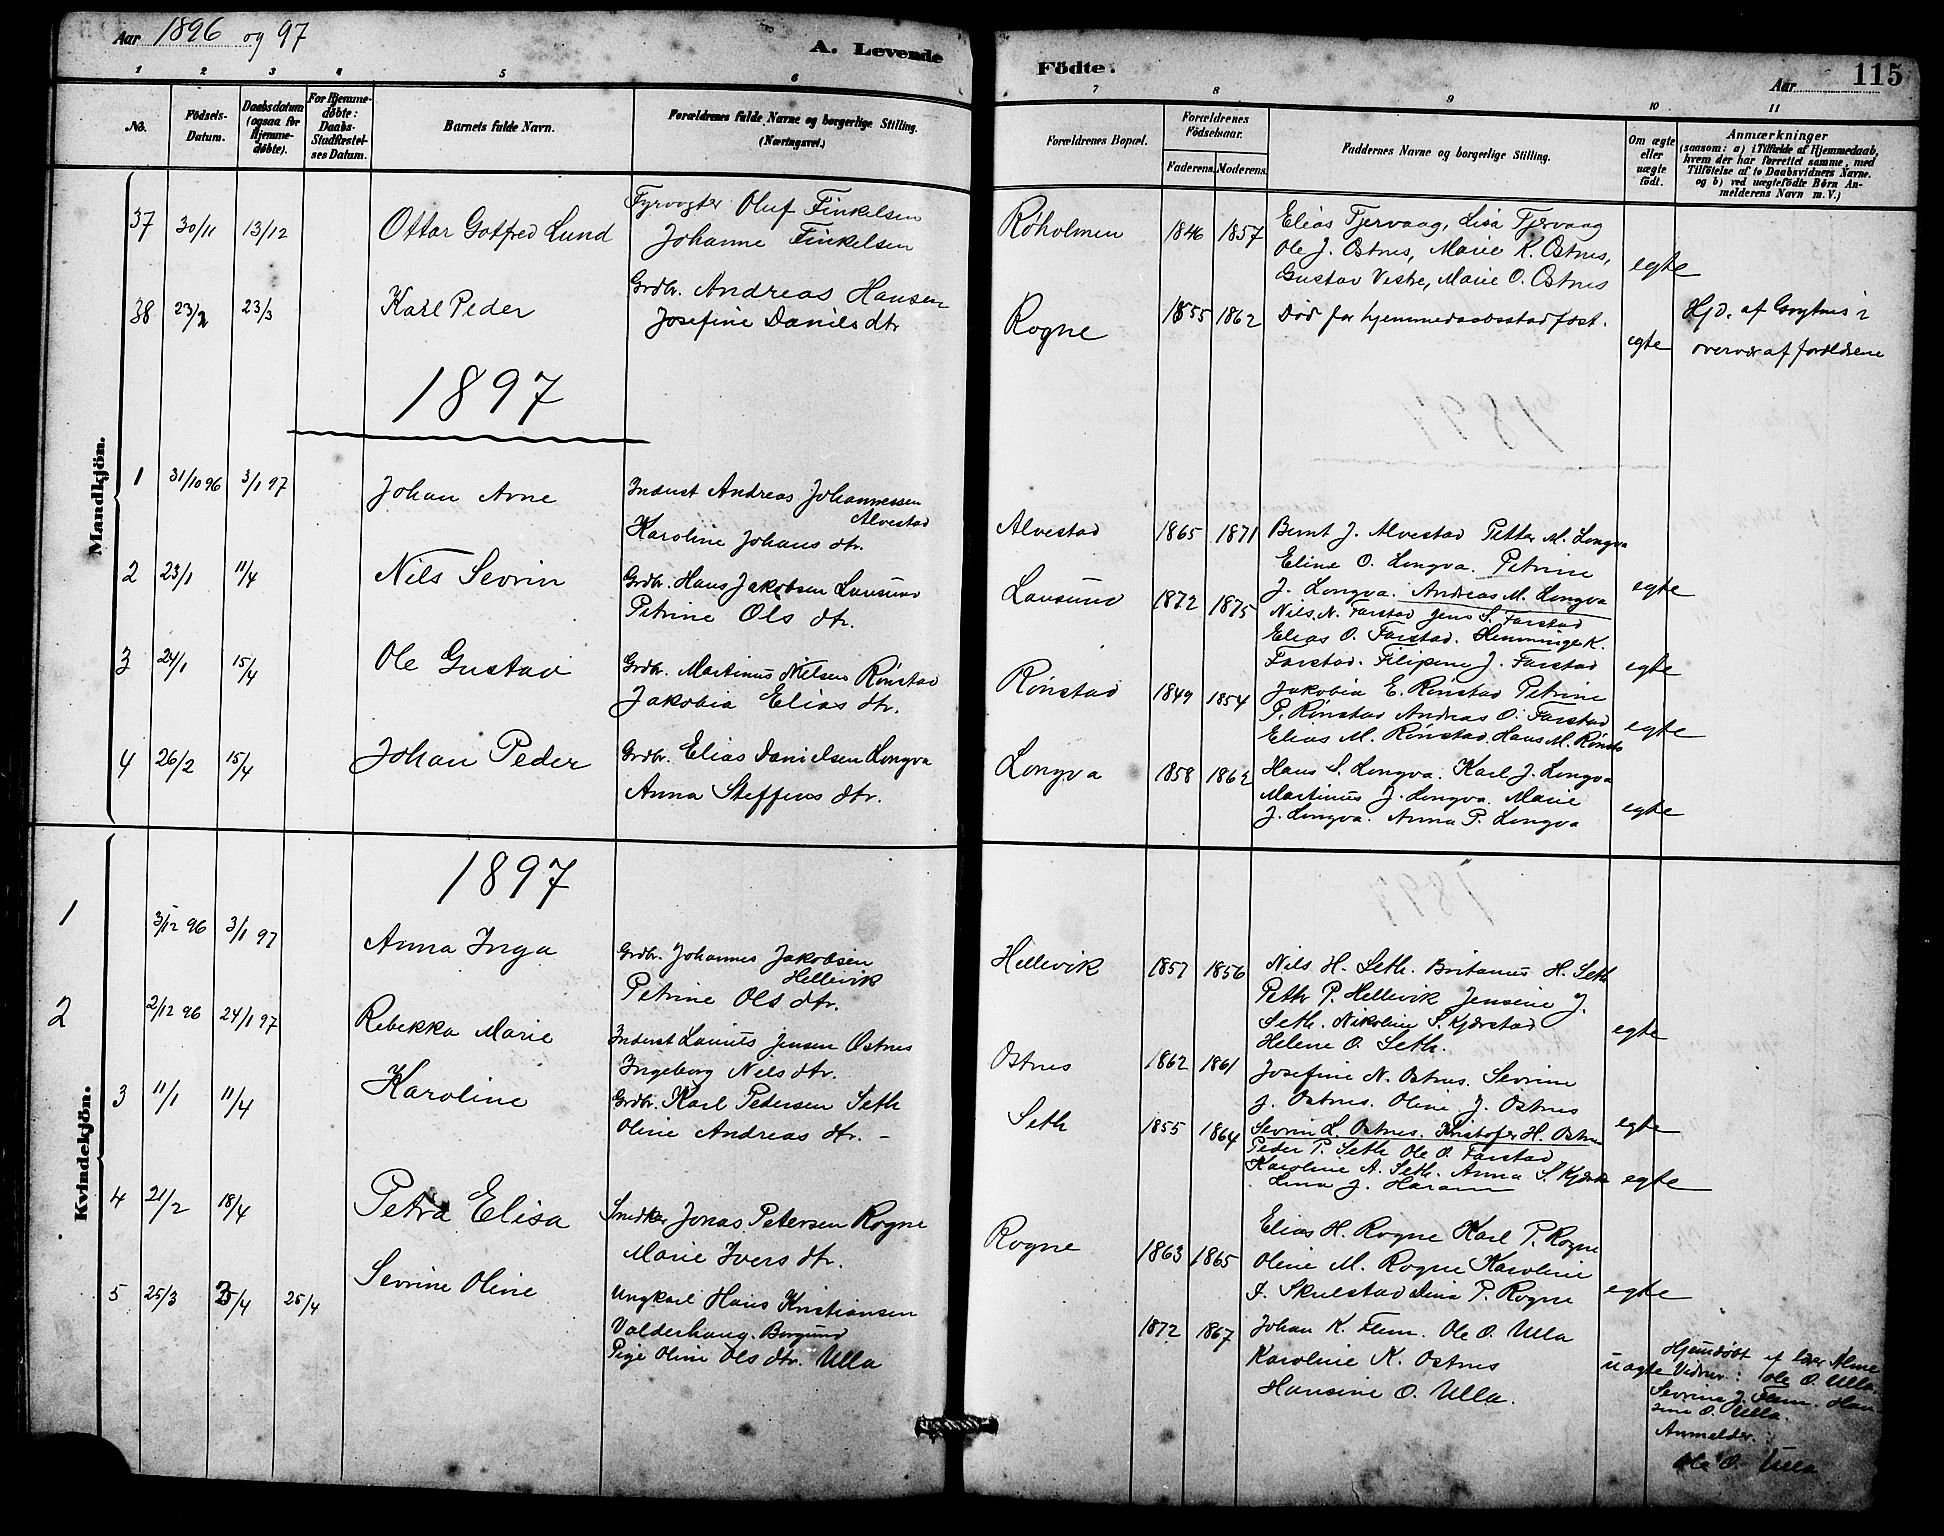 Aar 1896 og 97
A. Levende
Födte.
Aar
115
1 2 3 4 5 6 7 8 9 10 11
No.
Födsels-
Datum.
Daabsdatum
(ogsaa for
Hjemme-
døbte).
For Hjemme-
døbte:
Daabs-
Stadfæstel-
ses Datum.
Barnets fulde Navn.
Forældrenes fulde Navne og borgerlige Stilling.
(Næringsvei.)
Forældrenes Bopæl.
Forældrenes
Födselsaar.
Faderens. Moderens.
Faddernes Navne og borgerlige Stilling.
Om ægte
eller
uægte
født.
Anmærkninger
(saasom: a) i Tilfælde af Hjemmedaab,
hvem der har forrettet samme, med
Tilföielse af to Daabsvidners Navne.
og b) ved uægtefödte Börn An-
melderens Navn m. V.)
Mandkjön.
37 30/11 13/12 Ottar Gotfred Lund
Fyrvogter Oluf Finkelsen
Johanne Finkelsen
Røholmen 1846 1857
Elias Fjervaag, Lisa Fjervaag
Ole J. Ostnes, Marie K. Ostnes,
Gustav Vestre, Marie O. Ostnes
egte
38 23/2 23/3 Karl Peder
Grdbr. Andreas Hansen
Josefine Daniels dtr
Rogne 1855 1862
Død før hjemmedaabsstadfæst.
egte
Hjd. af Gryttnes i
overvær af forældrene
1897
1 31/10 96 3/1 97 Johan Arne
Inderst Andreas Johannessen
Alvestad
Karoline Johans dtr.
Alvestad 1865 1871
Bernt J. Alvestad Petter M. Longva
Eline O. Longva. Petrine
J. Longva. Andreas M. Longva
egte
2 23/1 11/4 Nils Sevrin
Grdbr. Hans Jakobsen Lausund
Petrine Ols dtr.
Lausund 1872 1875
Nils N. Farstad Jens S. Farstad
Elias O. Farstad. Hemminge K.
Farstad. Filipine J. Farstad
egte
3 24/1 15/4 Ole Gustav
Grdbr. Martinus Nilsen Rønstad
Jakobia Elias dtr.
Rønstad 1849 1854
Jakobia E. Rønstad Petrine
P. Rønstad Andreas O. Farstad
Elias M. Rønstad. Hans M. Rønstd
egte
4 26/2 15/4 Johan Peder
Grdbr. Elias Danielsen Longva
Anna Steffens dtr.
Longva 1858 1862
Hans S. Longva. Karl J. Longva
Martinus J. Longva. Marie
J. Longva. Anna P. Longva
egte
Kvindekjön.
1897
1 3/12 96 3/1 97 Anna Inga
Grdbr. Johannes Jakobsen
Hellevik
Petrine Ols dtr.
Hellevik 1851 1856
Nils H. Seth. Britanus H. Seth
Petter P. Hellevik Jensine J.
Seth. Nikoline S. Kjærstad
Helene O. Seth.
egte
2 2/12 96 24/1 97 Rebekka Marie
Inderst Laurits Jensen Ostnes
Ingeborg Nils dtr.
Ostnes 1862 1861
Josefine N. Ostnes. Sevrine
J. Ostnes. Oline J. Ostnes
Sevrin L. Ostnes. Kristofer H. Ostnes
egte
3 11/1 11/4 Karoline
Grdbr. Karl Pedersen Seth
Oline Andreas dtr. -
Seth 1855 1864
Peder P. Seth Ole O. Farstad
Karoline A. Seth. Anna S. Kjærstd
Lina J. Haram
egte
4 21/2 18/4 Petra Elisa
Snedker Jonas Petersen Rogne
Marie Ivers dtr.
Rogne 1863 1865
Elias H. Rogne Karl P. Rogne
Oline M. Rogne Karoline
I. Skulstad Lina P. Rogne
egte
5 25/3 25/4 25/4 Sevrine Oline
Ungkarl Hans Kristiansen
Valderhaug. Borgund
Pige Oline Ols dtr. Ulla
1872 1867
Johan K. Flem. Ole O. Ulla
Karoline K. Ostnes
Hansine O. Ulla.
uægte
Hjemdøbt af lærer Alme
Vidner: Ole O. Ulla.
Sevrine J. Flem. Han-
sine O. Ulla.
Anmelder:
Ole O. Ulla